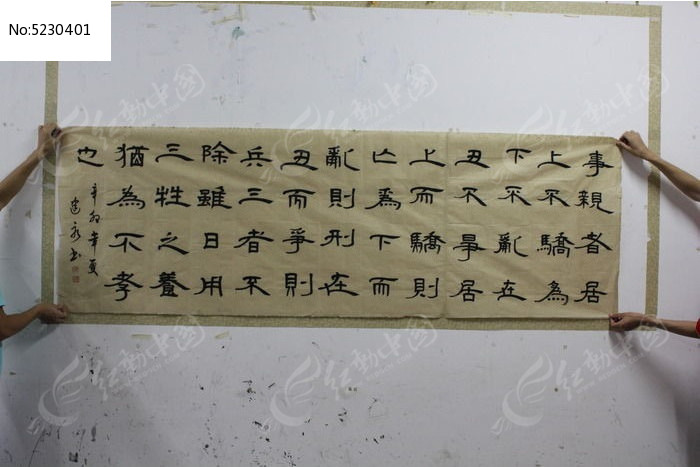 No:5230401
事親者居
上不驕為
下不亂在
丑不爭居
上而驕則
亡爲下而
亂則刑在
丑而爭則
兵三者不
除雖日用
三牲之養
猶為不孝
也
辛卯年夏
红动中国